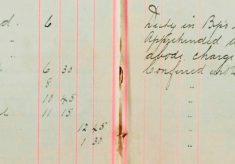 d. 6
6 30
8
10 45
11 15
12 45
1 30
Date in Bks
Apprehended
above charge
Confined
"
"
"